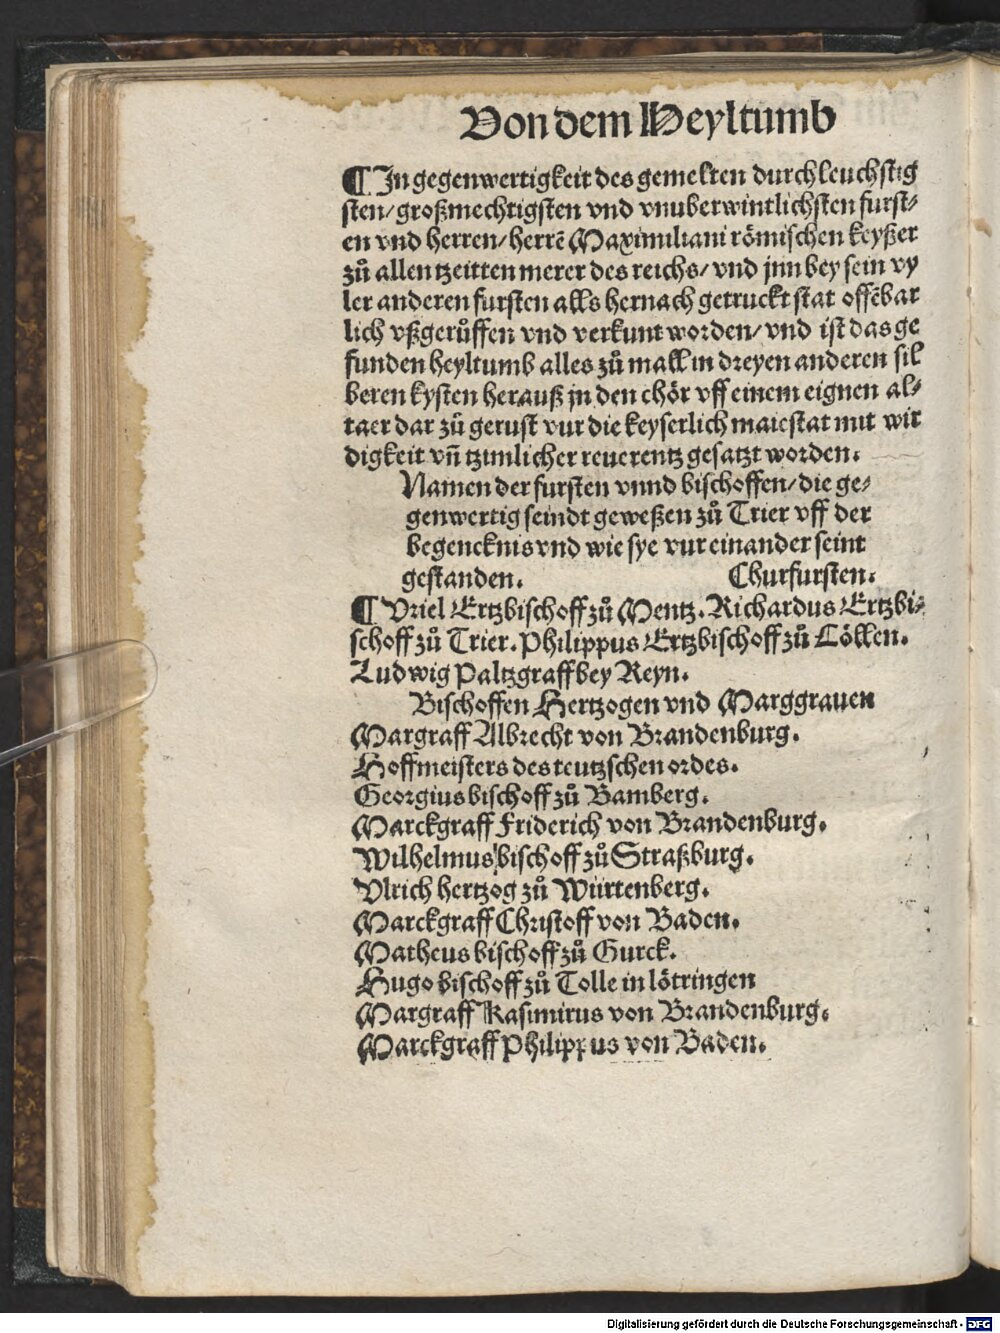 Von dem Heyltumb
¶ In gegenwertigkeit des gemelten durchleuchstig
sten/großmechtigsten vnd vnuberwintlichsten furst⸗
en vnd herren/herrē Maximiliani römischen keyßer
zů allen tzeitten merer des reichs/vnd jnn bey sein vy
ler anderen fursten alls hernach getruckt stat offēbar
lich vßgerůffen vnd verkunt worden/vnd ist das ge
funden heyltumb alles zů mall in dreyen anderen sil
beren kysten herauß jn den chör vff einem eignen al⸗
taer dar zů gerust vur die keyserlich maiestat mit wir
digkeit vn̄ tzimlicher reuerentz gesatzt worden.
Namen der fursten vnnd bischoffen/die ge⸗
genwertig seindt geweßen zů Trier vff der
begencknis vnd wie sye vur einander seint
gestanden. Churfursten.
¶ Vriel Ertzbischoff zů Mentz. Richardus Ertzbi⸗
schoff zů Trier. Philippus Ertzbischoff zů Cöllen.
Ludwig Paltzgraff bey Reyn.
Bischoffen Hertzogen vnd Marggrauen
Margraff Albrecht von Brandenburg.
Hoffmeisters des teutzschen ordes.
Georgius bischoff zů Bamberg.
Marckgraff Friderich von Brandenburg.
Wilhelmus bischoff zů Straßburg.
Vlrich hertzog zů Wirtenberg.
Marckgraff Christoff von Baden.
Matheus bischoff zů Gurck.
Hugo bischoff zů Tolle in lötringen
Margraff Kasimirus von Brandenburg.
Marckgraff Philippus von Baden.
Digitalisierung gefördert durch die Deutsche Forschungsgemeinschaft - DFG